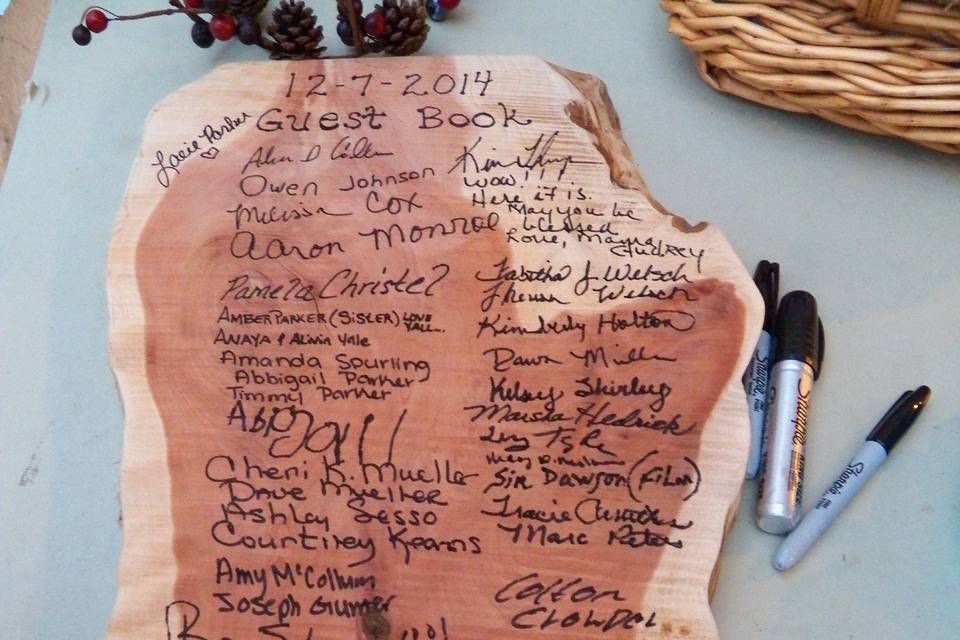 12-7-2014
Guest Book
Lacie Parker
Owen Johnson
Melissa Cox
Aaron Monroe
Pamela Christel
AMBER PARKER (SISLER) LOVE YALL..
ANAYA & Alivia Vale
Amanda Spurling
Abbigail Parker
Timmy Parker
Cheri K. Mueller
Dave Mueller
Ashley Sesso
Courtney Kearns
Amy McCollum
Joseph Gumer
Kim
Wow!!!
Here it is.
May you be
blessed
Love, Mama
Audrey
Tabitha J. Wetsch
Wetsch
Kimberly Holton
Dawn Miller
Kelsey Shirley
Marsha Hedrick
Sir Dawson (Film)
Tracie
Marc Peters
Colton
CLOWDEL
Sharpie
Sharpie
Sharpie